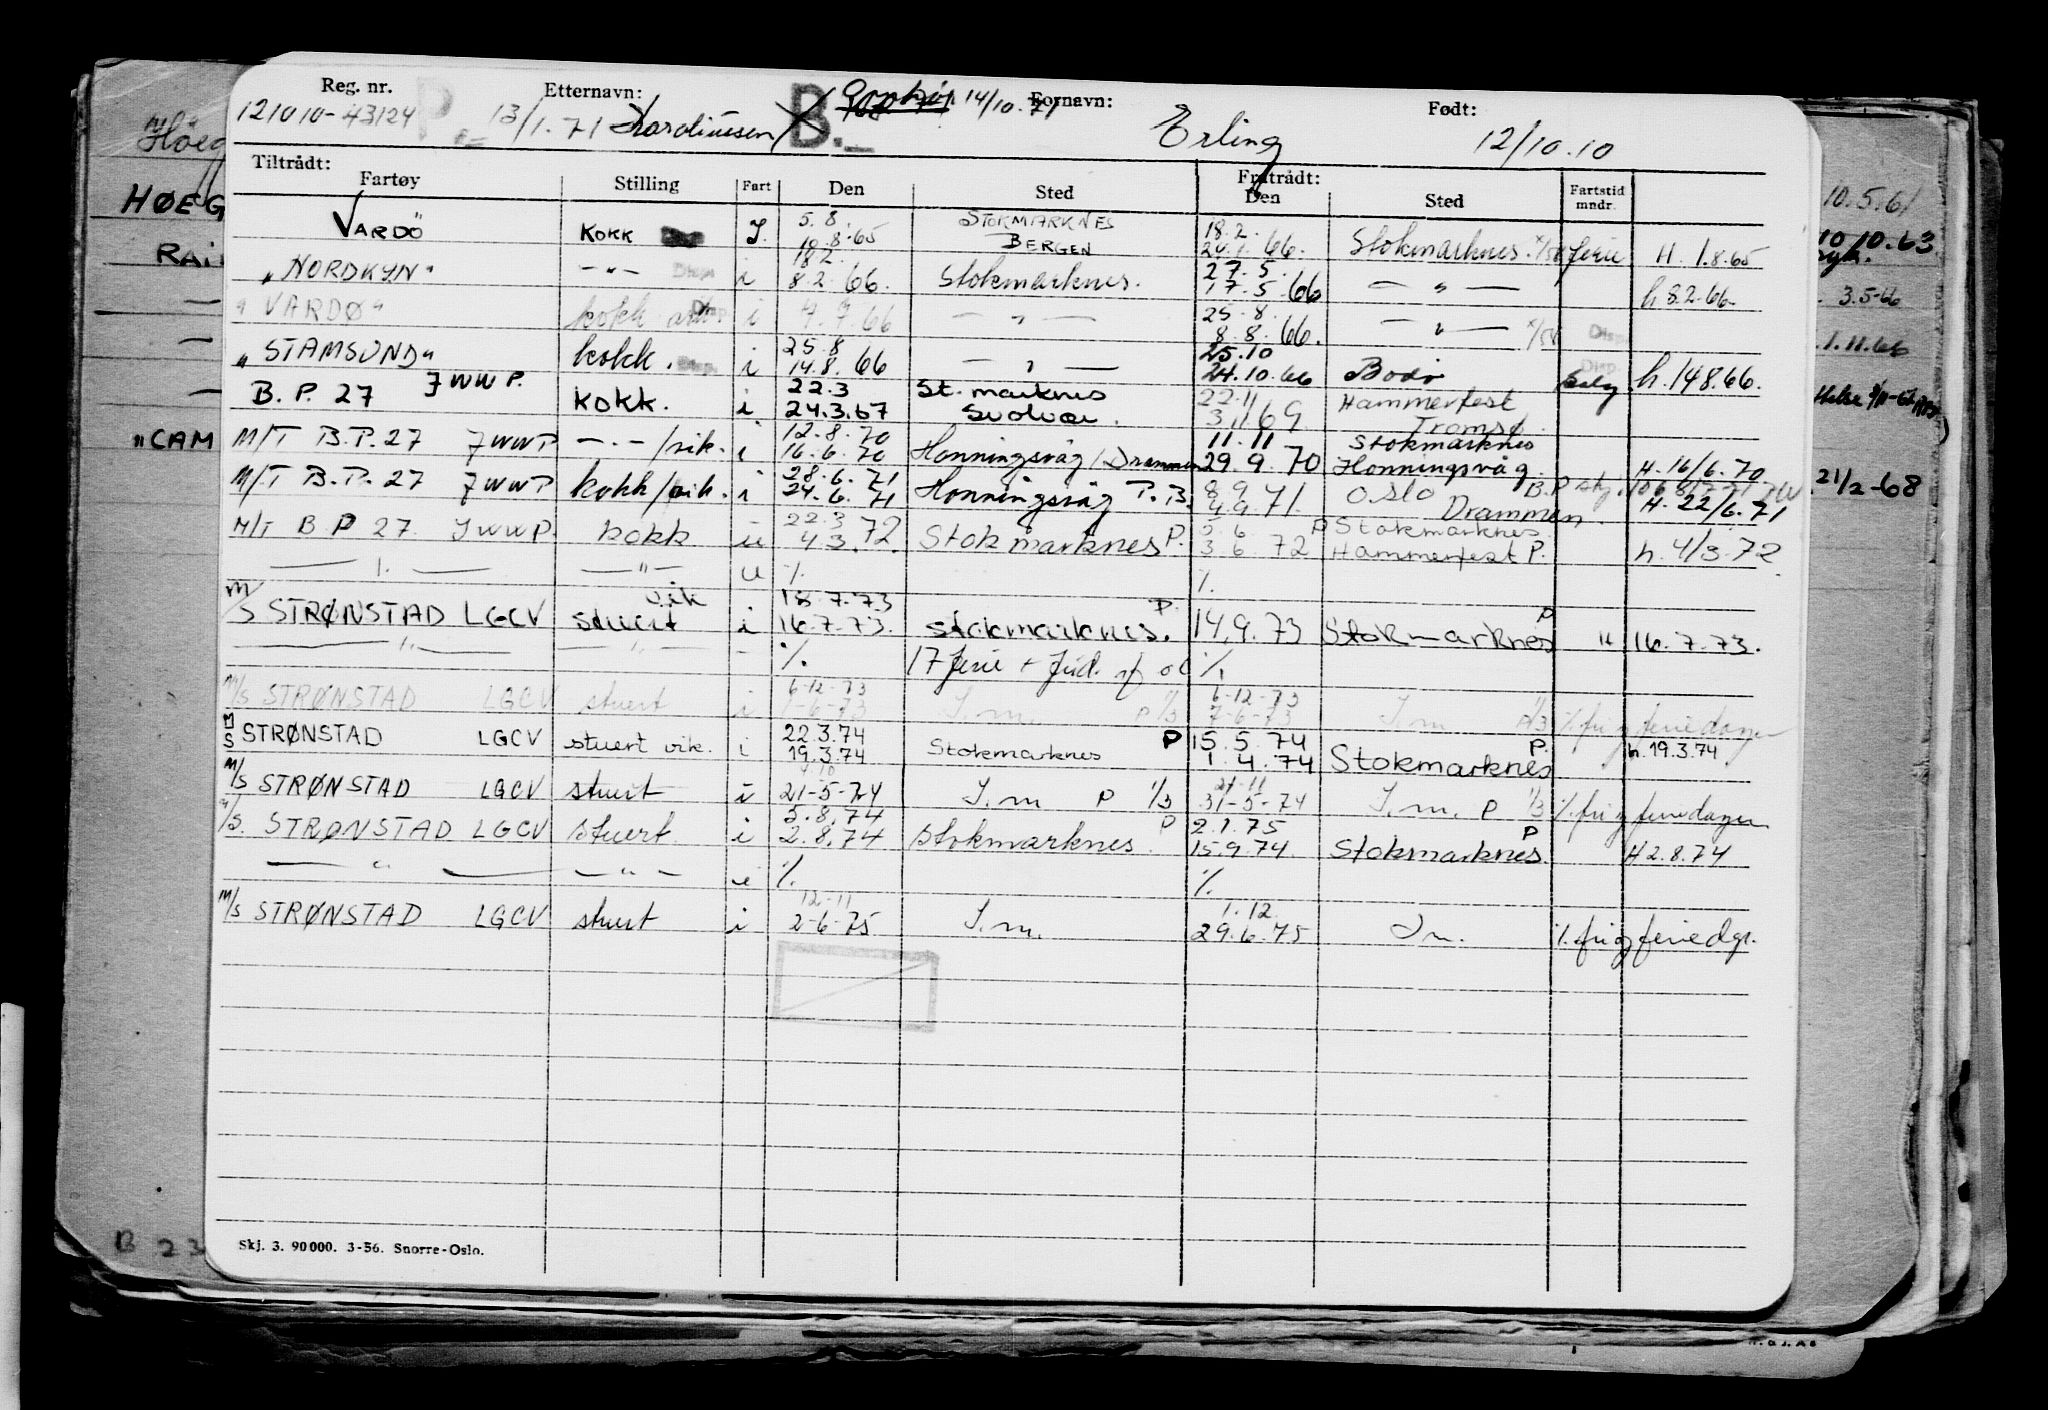 Reg. nr. Etternavn: Fornavn: Født:
121010-43124 P 13/1.71 B. 14/10.71 Erling 12/10.10
Tiltrådt: Fratrådt:
Fartøy Stilling Fart Den Sted Den Sted Fartstid mndr.
5.8. STOKMARKNES 18.2.
VARDÖ KOKK I. BERGEN 66. Stokmarknes. ferie H. 1.8.65
18.2. 27.5.
"NORDKYN" -"- i 8.2.66. Stokmarknes. 17.5.66 - " - h 8.2.66.
25.8.
"VARDØ" kokk i - " - 8.8.66. - " -
25.8 25.10
"STAMSUND" kokk. i 14.8.66 - " - 24.10.66 Bodö h. 14.8.66.
22.3 St. marknes 22.11 Hammerfest
B.P. 27 JWWP. KOKK. i 24.3.67 Svolvær. 3.11.69 Tromsø.
12.8.70 11.11 Stokmarknes
M/T B.P. 27 JWWP -.-/vik. i 16.6.70 Honningsvåg/Drammen 29.9.70 Honningsvåg. H. 16/6.70
28.6.71 8.9. Oslo
M/T B.P. 27 JWWP kokk/vik. i 24.6.71 Honningsvåg P.B. 4.9.71. Drammen. H. 22/6.71
22.3 5.6. P Stokmarknes.
M/T B P 27. JWWP. kokk u 4.3.72. Stokmarknes P. 3.6.72 Hammerfest P. h. 4/3.72
- " - - " - u %. %.
vik 18.7.73 P. P
M/S STRØNSTAD LGCV stuert i 16.7.73. stokmarknes. 14.9.73 Stokmarknes H 16.7.73.
- " - - " - - %. 17 ferie + %.
6-12-73 6-12-73
M/S STRØNSTAD LGCV stuert i 1-6-73 I.m. P 1/3 7-6-73 I.m P 1/3 %.fri og feriedager
22.3.74 P 15.5.74 P.
M/S STRØNSTAD LGCV stuert vik. i 19.3.74 Stokmarknes 1.4.74 Stokmarknes h. 19.3.74
4.10 21.11
M/S STRØNSTAD LGCV stuert i 21-5-74 I.m P 1/3 31-5-74 I.m. P 1/3 %.fri og feriedager
5.8.74 P 2.1.75 P
M/S. STRØNSTAD LGCV stuert. i 2.8.74 stokmarknes. 15.9.74. Stokmarknes. H 2.8.74
- " - - " - %. %.
12-11 1.12.
M/S STRØNSTAD LGCV stuert i 2-6-75 I.m. 29.6.75 I m. %.fri og feriedgr.
Skj. 3. 90000. 3-56. Snorre-Oslo.
HØEG
RAI
"CAM
B 23
10.5.61
10/10.63
3.5-66
1.11.66
21/2-68